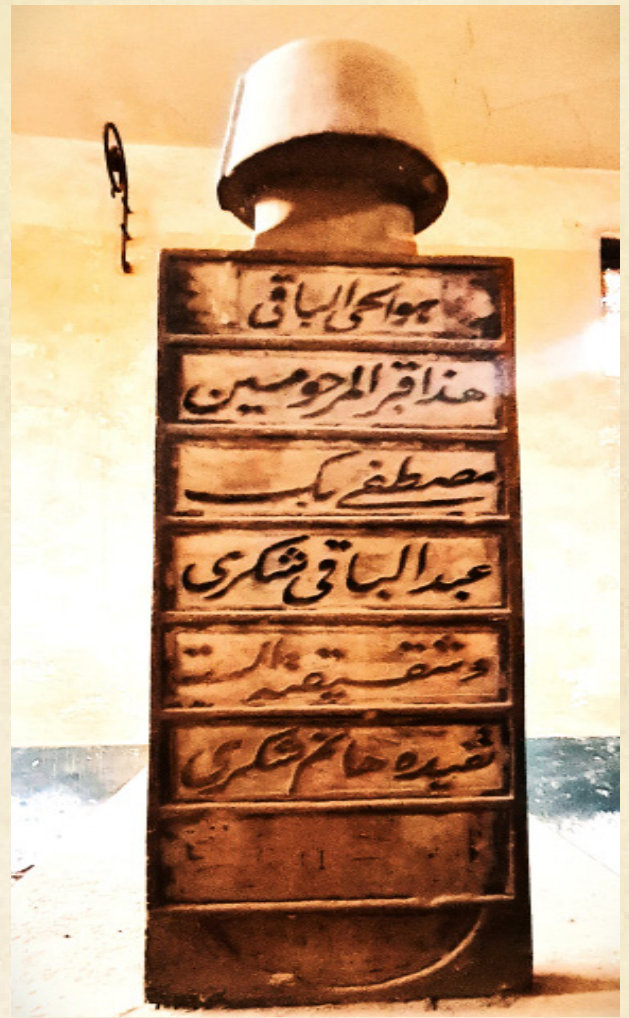 هو الحى الباقى
هذا قبر المرحومين
مصطفى بك
عبد الباقى شكرى
وشقيقته الست
شكرى هانم